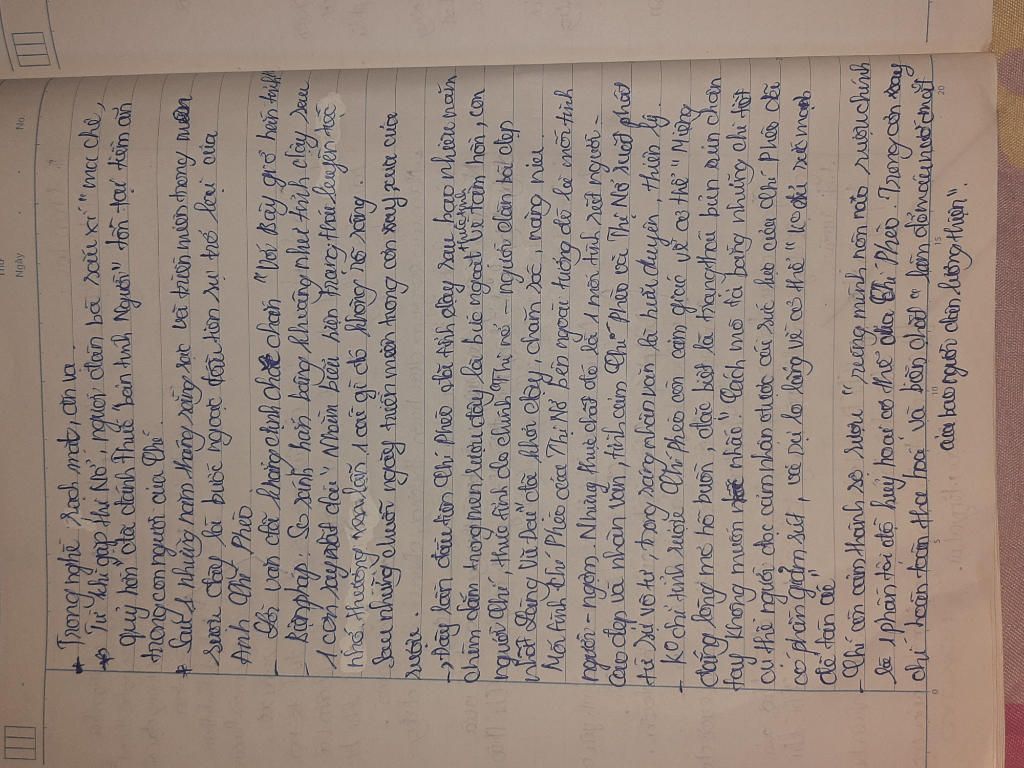 No.
Thứ
Ngày No.
* Trong nghề rạch mặt, ăn vạ
* Từ khi gặp thị Nở, người đàn bà xấu xí "ma chê,
quỷ hờn" đã đánh thức "bản tính Người" tồn tại tiềm ẩn
trong con người của Chí
* Sau những năm tháng sống say và triền miên trong
rượu đây là bước ngoặt đầu tiên sự trở lại của
Anh Chí Phèo
- Lời văn đầy khẳng định chắc chắn "Với Bây giờ hắn tỉnh"
- Biện pháp: So sánh, hắn bâng khuâng như tỉnh dậy sau
1 cơn say rất dài" Nhằm biểu hiện trạng thái luyến tiếc
nhớ thương, man mác 1 cái gì đó không rõ ràng
Sau những chuỗi ngày triền miên trong cơn say xưa của
rượu.
→ Đây lần đầu tiên Chí Phèo đã tỉnh dậy sau bao nhiêu năm
chìm đắm trong men rượu đây là bước ngoặt về tâm hồn, con
người Chí, thức tỉnh do chính Thị nở - người đàn bà đẹp
nhất Làng Vũ Đại" đã khơi dậy, chăm sóc, nâng niu.
Mối tình chí Phèo của Thị Nở bên ngoài tưởng đó là mối tình
người - ngợm. Nhưng thực chất đó là 1 mối tình rất người -
Cao đẹp và nhân văn, tình cảm Chí Phèo và Thị Nở xuất phát
từ sự vô tư, trong sáng nhân văn là bởi duyên, thiên lý.
- Ko chỉ tỉnh rượu Chí Phèo còn cảm giác về cơ thể "Miệng
đắng lòng mơ hồ buồn, đặc biệt là trạng thái bủn rủn chân
tay không muốn nhấc" Cách mô tả bằng những chi tiết
cụ thể người đọc cảm nhận được cái sức lực của chí Phèo đã
có phần giảm sút, vì sự lo lắng về cơ thể "ko đủ sức mạnh
để tàn ác"
- Chí còn cảm thành sợ rượu "rùng mình nôn nao rượu chính
là 1 phần tối đã huỷ hoại cơ thể của Chí Phèo Trong cơn say
chí hoàn toàn tha hoá và bần chất" làm đổ máu nước mắt
của bao người dân lương thiện".
0 5 10 15 20